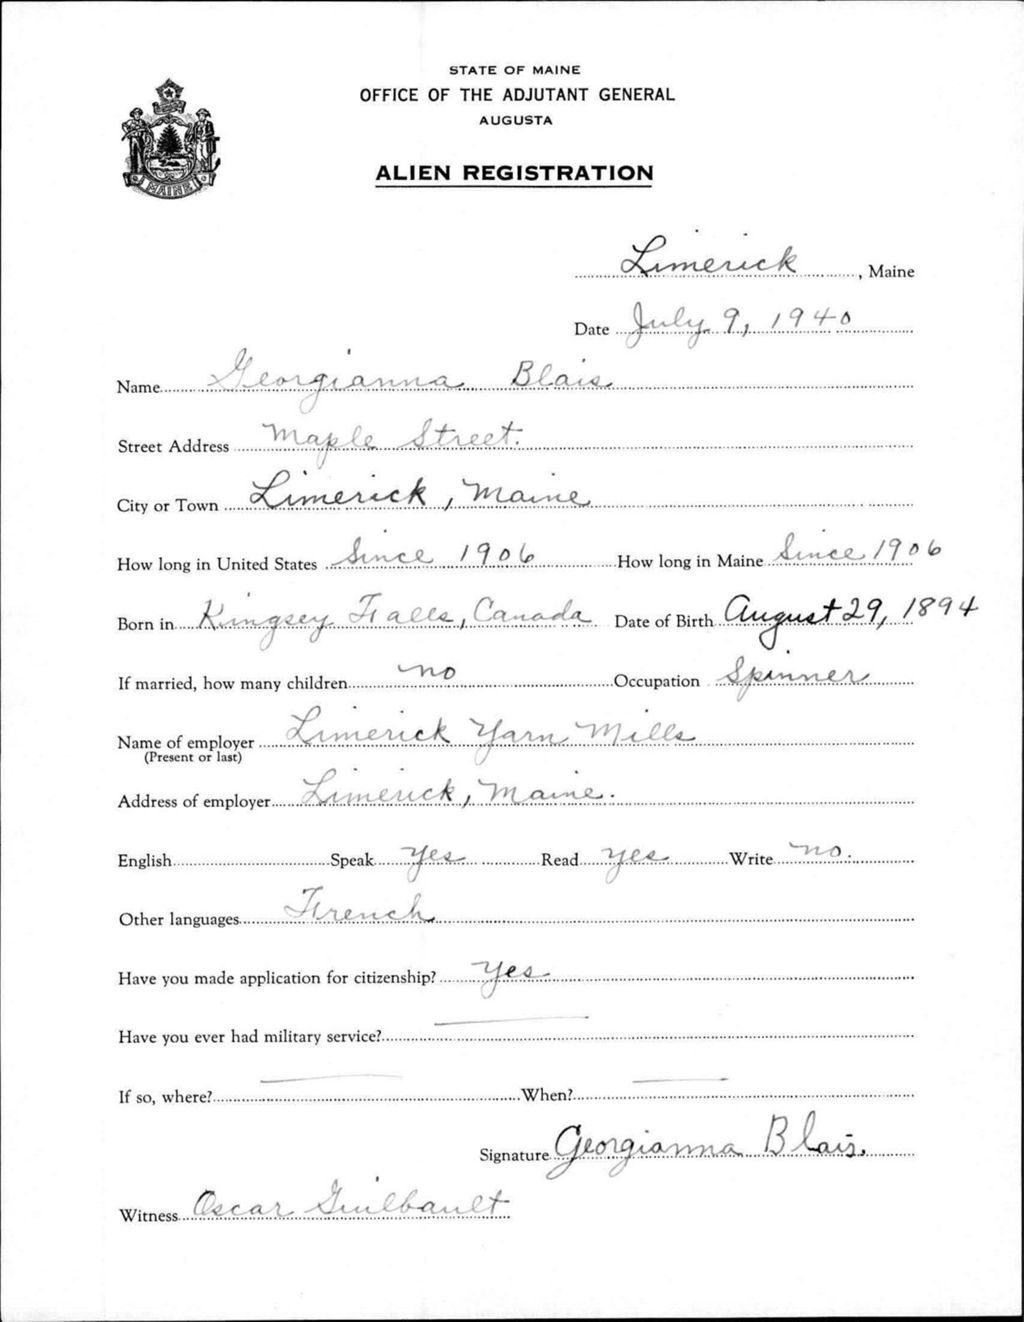 STATE OF MAINE
OFFICE OF THE ADJUTANT GENERAL
AUGUSTA
ALIEN REGISTRATION
MAINE
Limerick, Maine
Date July 9, 1940
Name Georgianna Blais
Street Address Maple Street.
City or Town Limerick, Maine
How long in United States Since 1906 How long in Maine Since 1906
Born in Kingsey Falls, Canada Date of Birth August 29, 1894
If married, how many children no Occupation Spinner
Name of employer Limerick Yarn Mills
(Present or last)
Address of employer Limerick, Maine.
English Speak Yes Read yes Write no.
Other languages French
Have you made application for citizenship? Yes
Have you ever had military service?
If so, where? When?
Signature Georgianna Blais.
Witness Oscar Guilbault